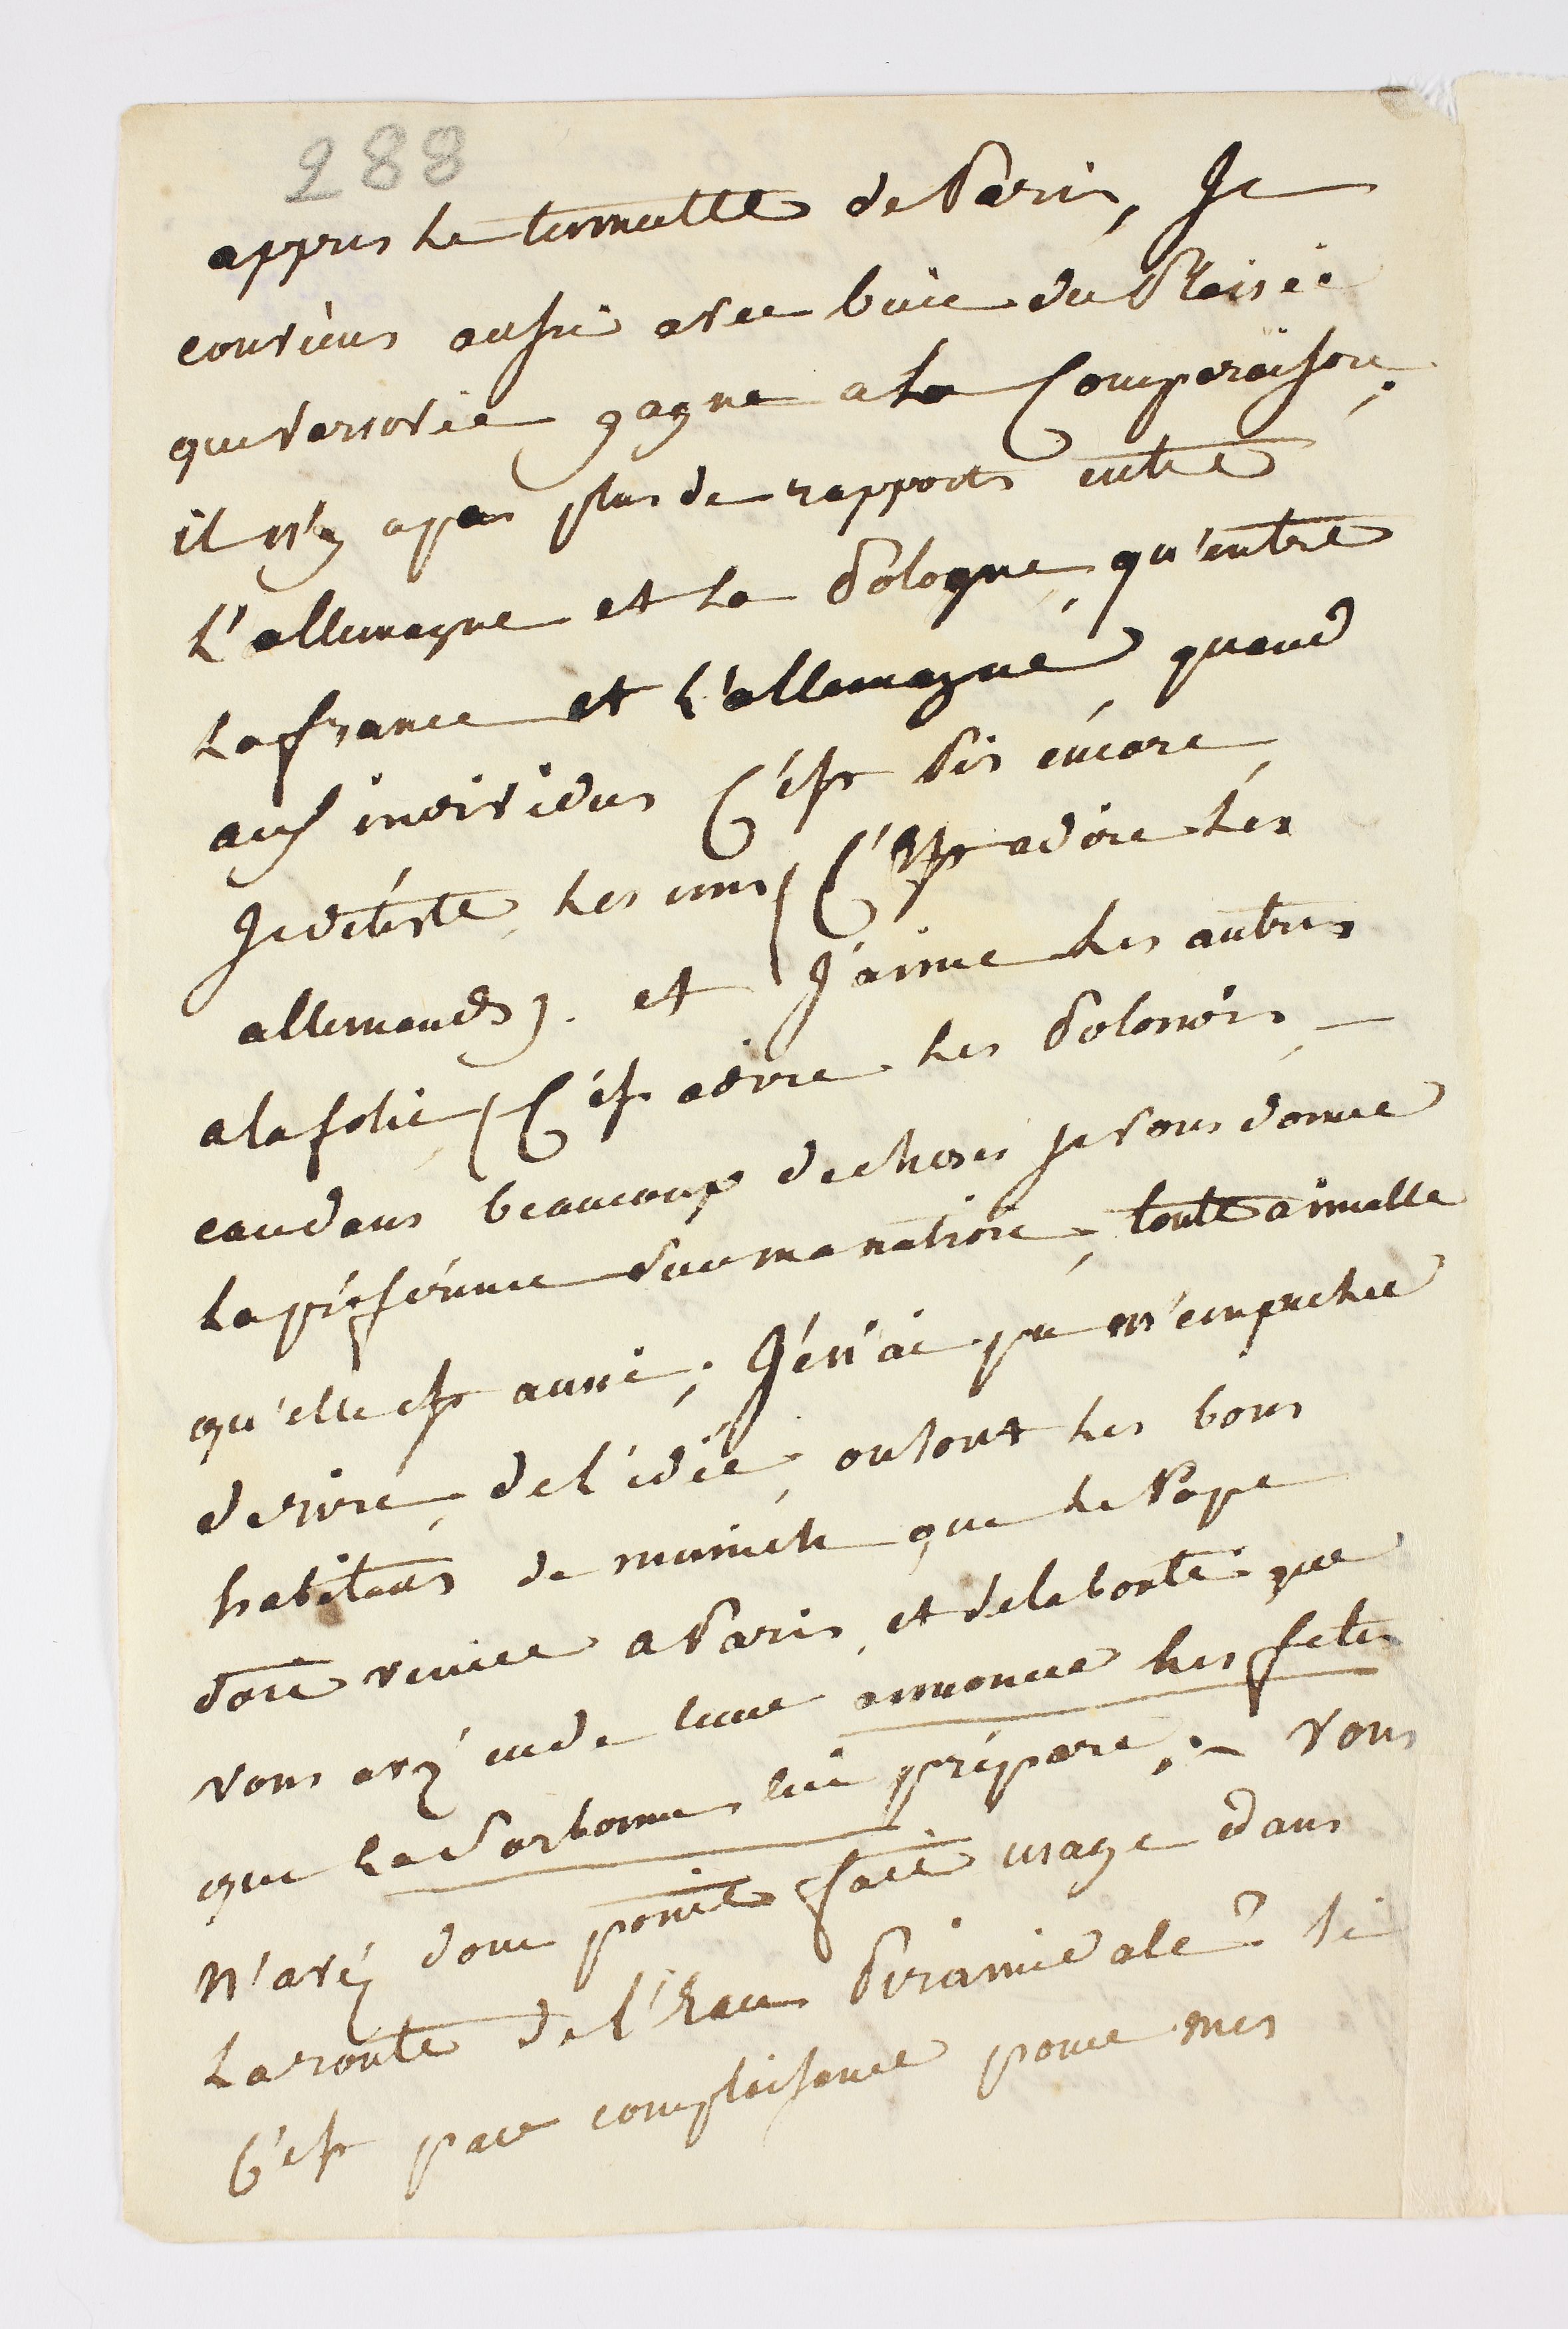 288
appres le tumulte de Paris, Je
conviens aussi avec bien du Plaisir
que varsovie gagne a la Comparaison;
il n'y a pas plus de rapports entre
L'allemagne et La Pologne, qu'entre
La france et L'allemagne quand
aux individus C'est Pis encore
Je deteste, les uns ( C'est a dire les
allemands). et J'aime les autres
a la folie ( C'est a dire les Polonois, —
dans beaucoup de choses je vous donne
la préférence sur ma nation, toute annuelle
qu'elle est aussi; Je n'ai pu m'empecher
de rire, de l'idée, ou sont les bons
habitans de munich que le Pape
doit venir a Paris, et de la bonté que
vous avéz eu de leur annoncer les fetes
que la Sorbonne lui prépare; – vous
n'avéz donc point fait usage dans
La route de l'Eau Piramidale? si
C'est par complaisance pour mes